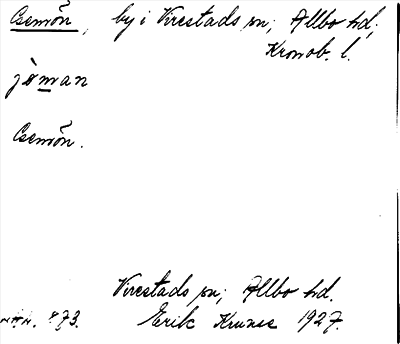 Esemön, by i Virestads sn; Allbo hd;
Kronob. l.
jèman
Esemön.
Virestads sn; Allbo hd.
873. Erik Kruuse 1927.